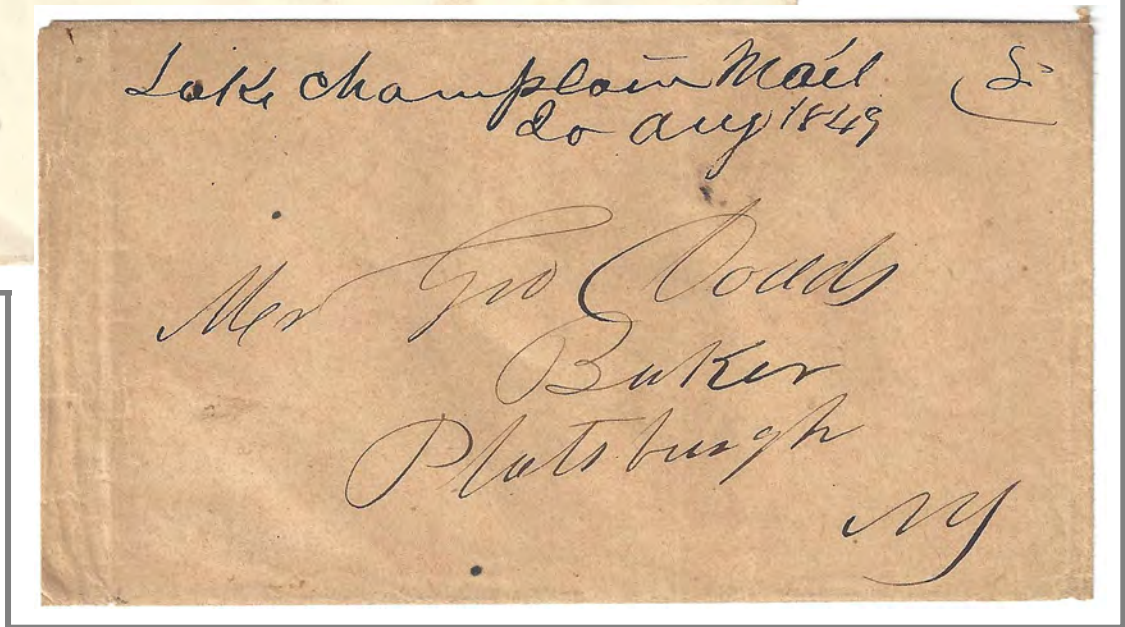 Lake Champlain Mail 5
20 Aug 1849
Mr Geo Dodds
Baker
Platsburgh
NY